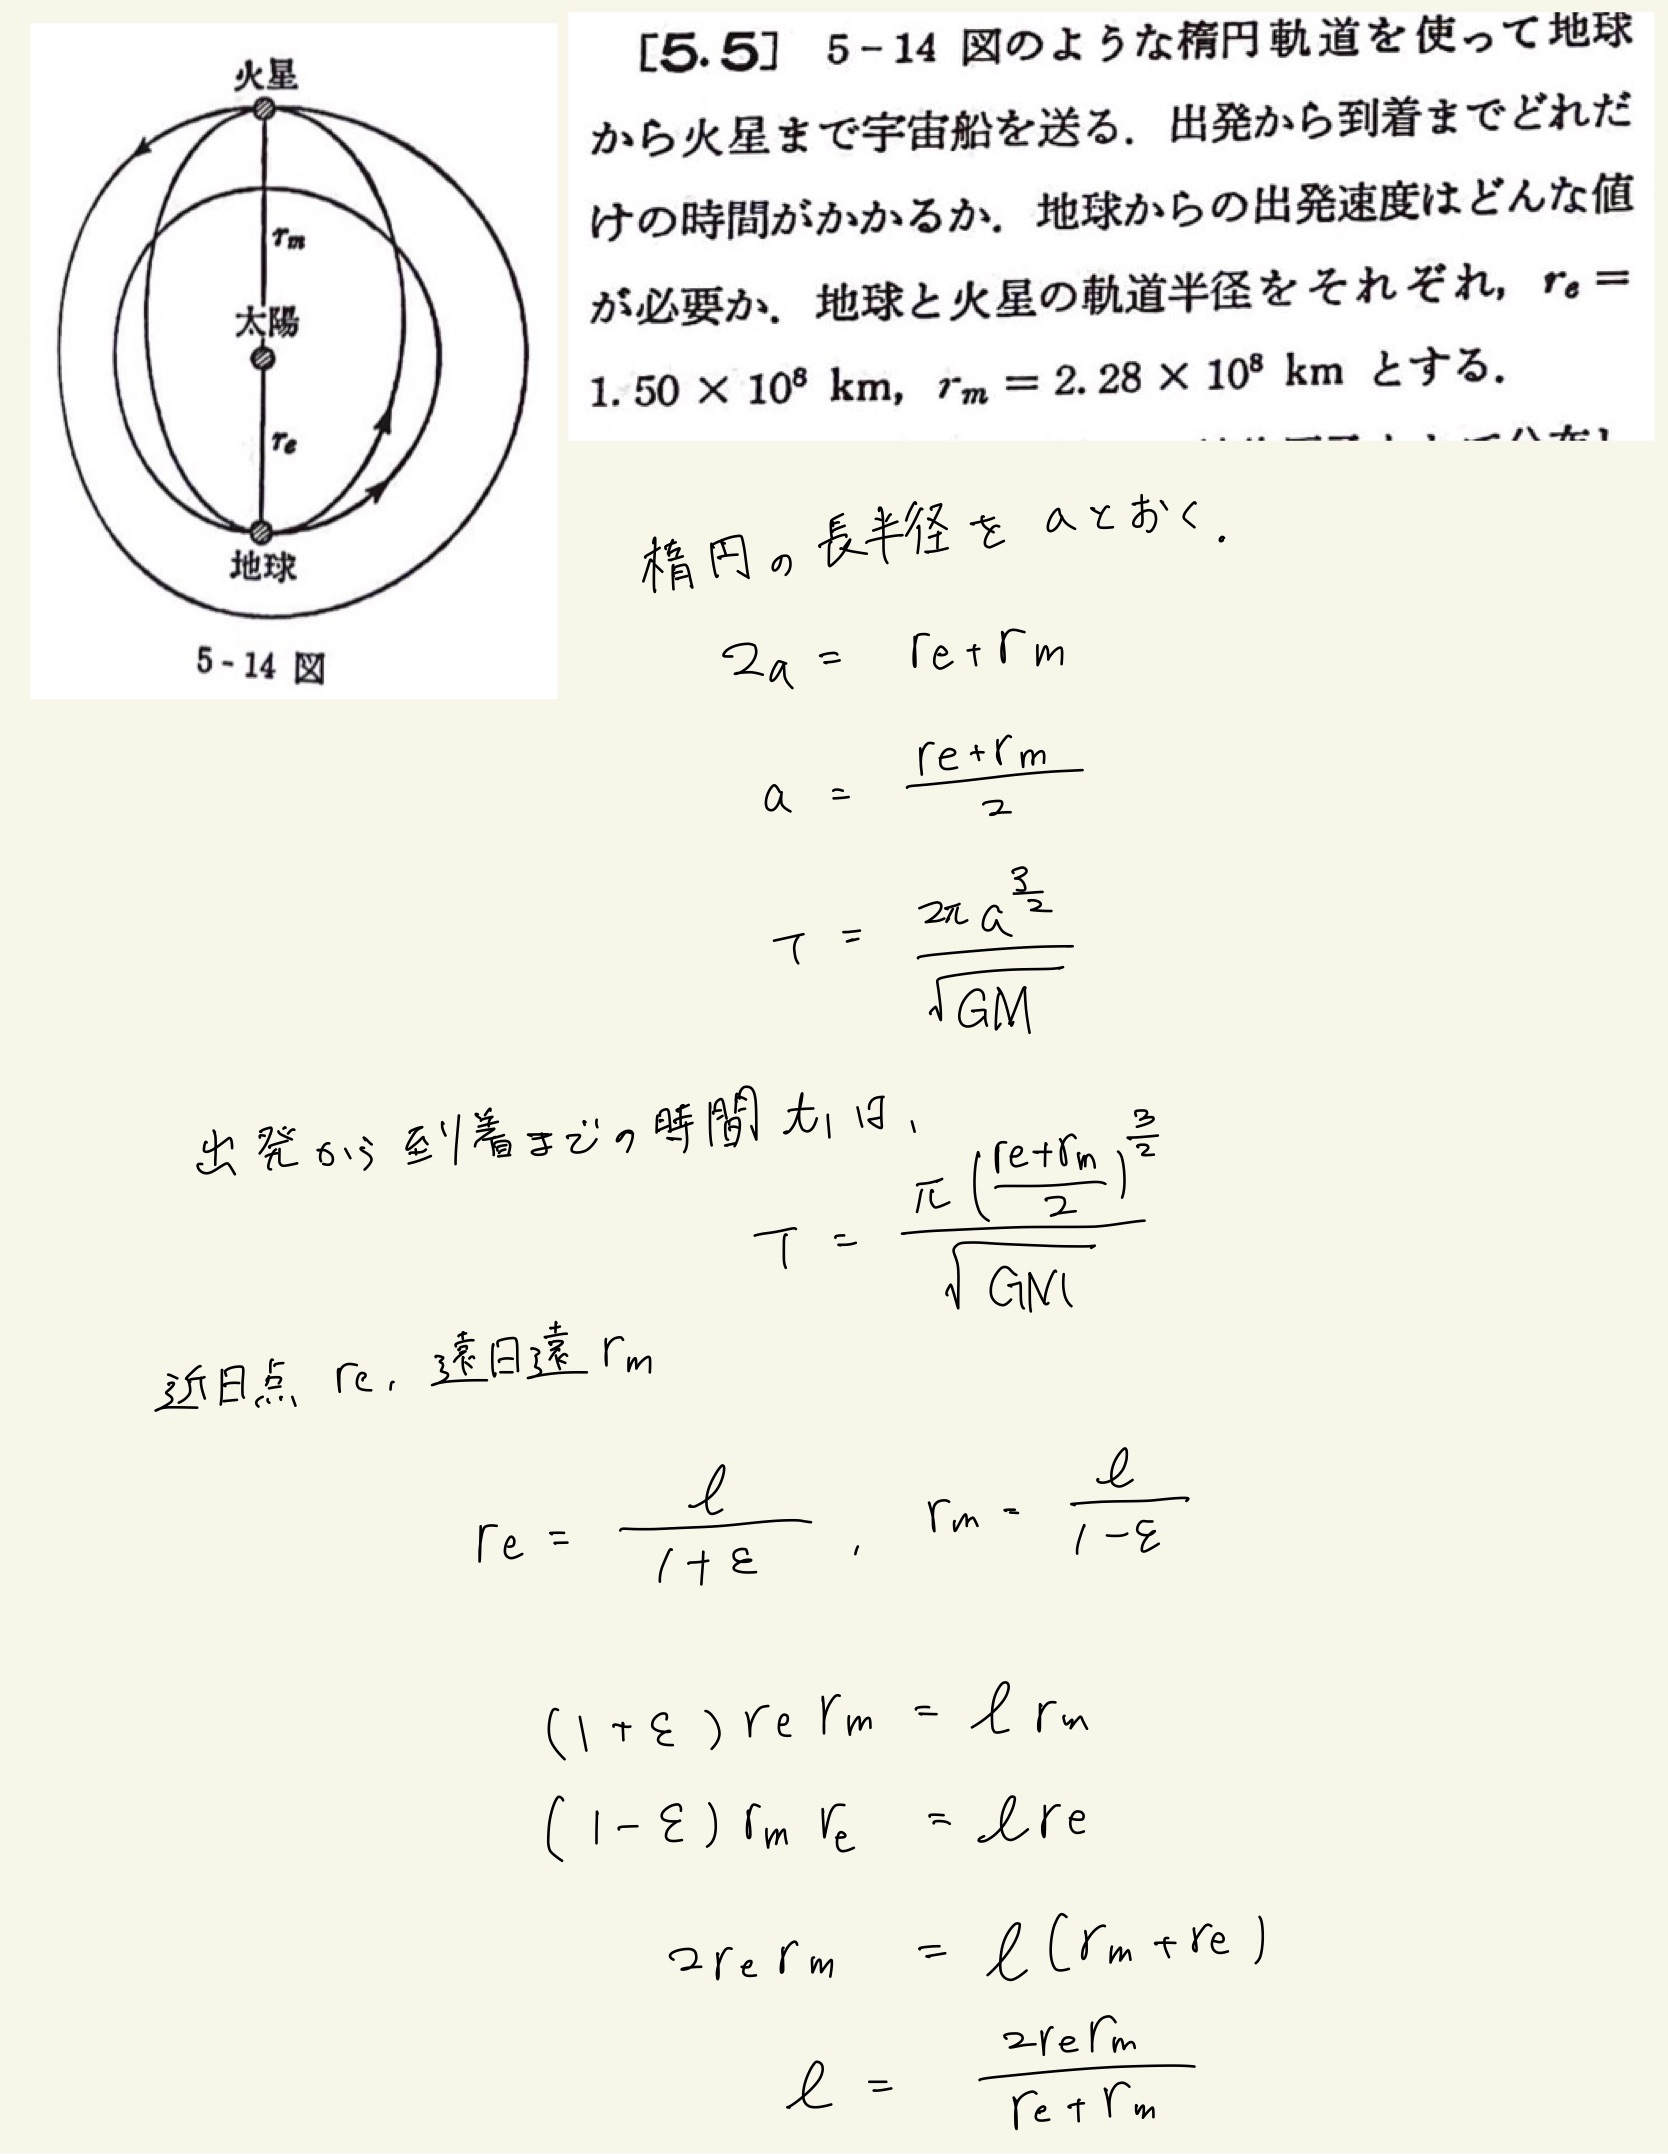 火星
rm
太陽
re
地球
5-14 図
[5.5] 5-14 図のような楕円軌道を使って地球
から火星まで宇宙船を送る. 出発から到着までどれだ
けの時間がかかるか. 地球からの出発速度はどんな値
が必要か. 地球と火星の軌道半径をそれぞれ, re =
1.50 × 10⁸ km, rm = 2.28 × 10⁸ km とする.
楕円の長半径を aとおく.
2a = re+rm
a = (re+rm)/2
T = 2πa^(3/2)/√GM
出発から到着までの時間 t₁ は,
T = π((re+rm)/2)^(3/2)/√GM
近日点 re, 遠日遠 rm
re = ℓ/(1+ε), rm = ℓ/(1-ε)
(1+ε) re rm = ℓ rm
(1-ε) rm re = ℓ re
2 re rm = ℓ (rm+re)
ℓ = 2rerm/(re+rm)